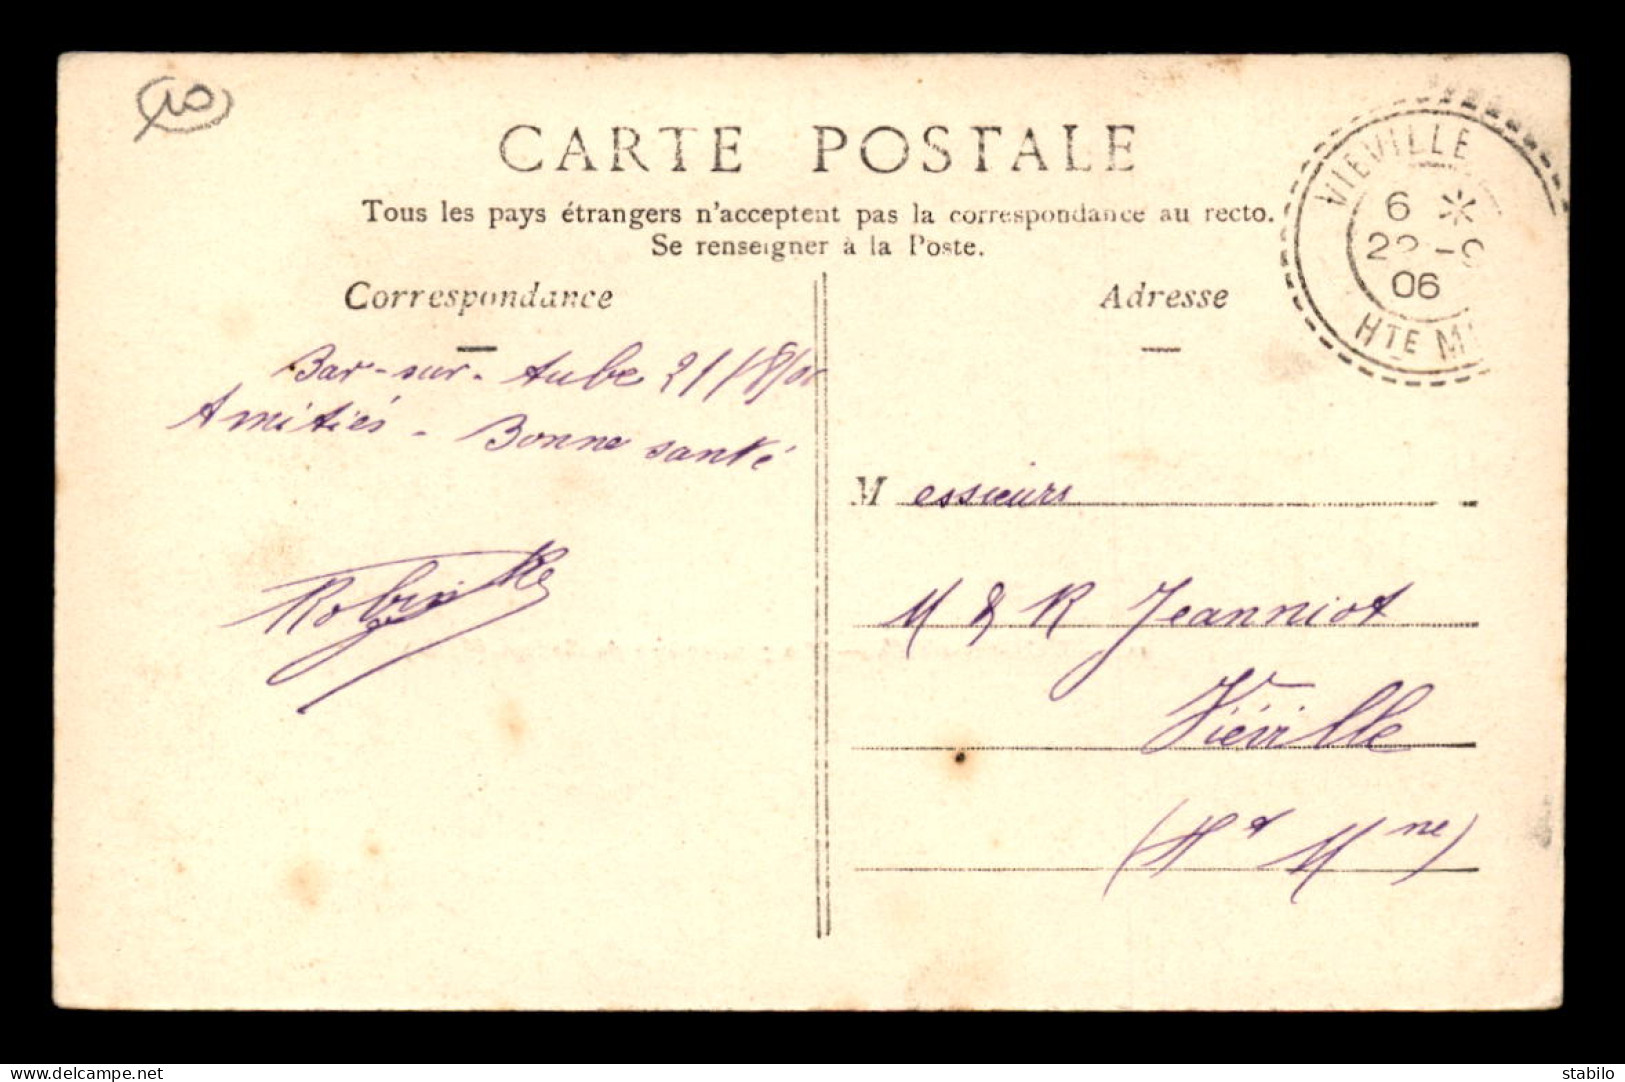 10
CARTE POSTALE
Tous les pays étrangers n'acceptent pas la correspondance au recto.
Se renseigner à la Poste.
VIEVILLE
6 *
06
HTE M
Correspondance
Bar-sur-Aube 21/8/06
Amitiés - Bonne santé
Adresse
Messieurs
M & R Jeanniot
Viéville
(Hte Mne)
delcampe.net
stabilo